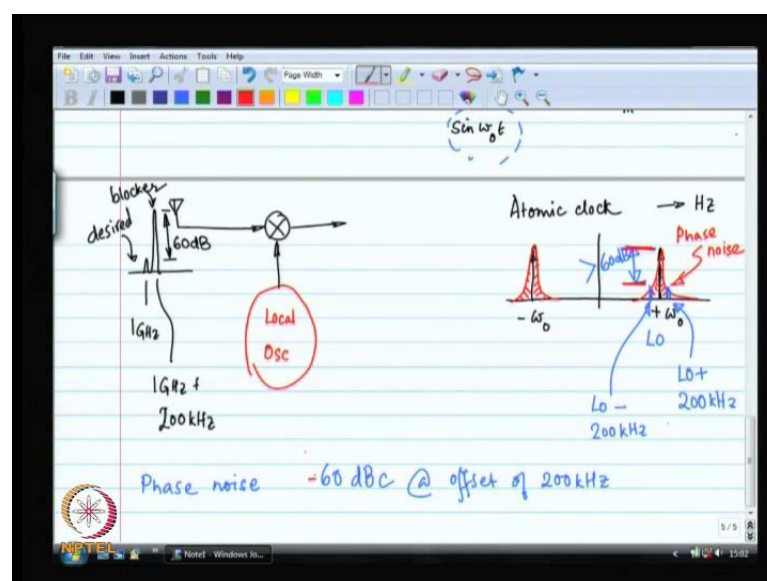 File Edit View Insert Actions Tools Help
Page Width
B I
Sin ω₀t
blocker
desired
60dB
1GHz
1GHz +
200kHz
Local
Osc
Atomic clock → Hz
Phase
noise
> 60dB
- ω₀
+ ω₀
LO
LO+
200kHz
LO -
200kHz
Phase noise -60 dBc @ offset of 200kHz
5/5
NPTEL
Note1 - Windows Jo...
15:02